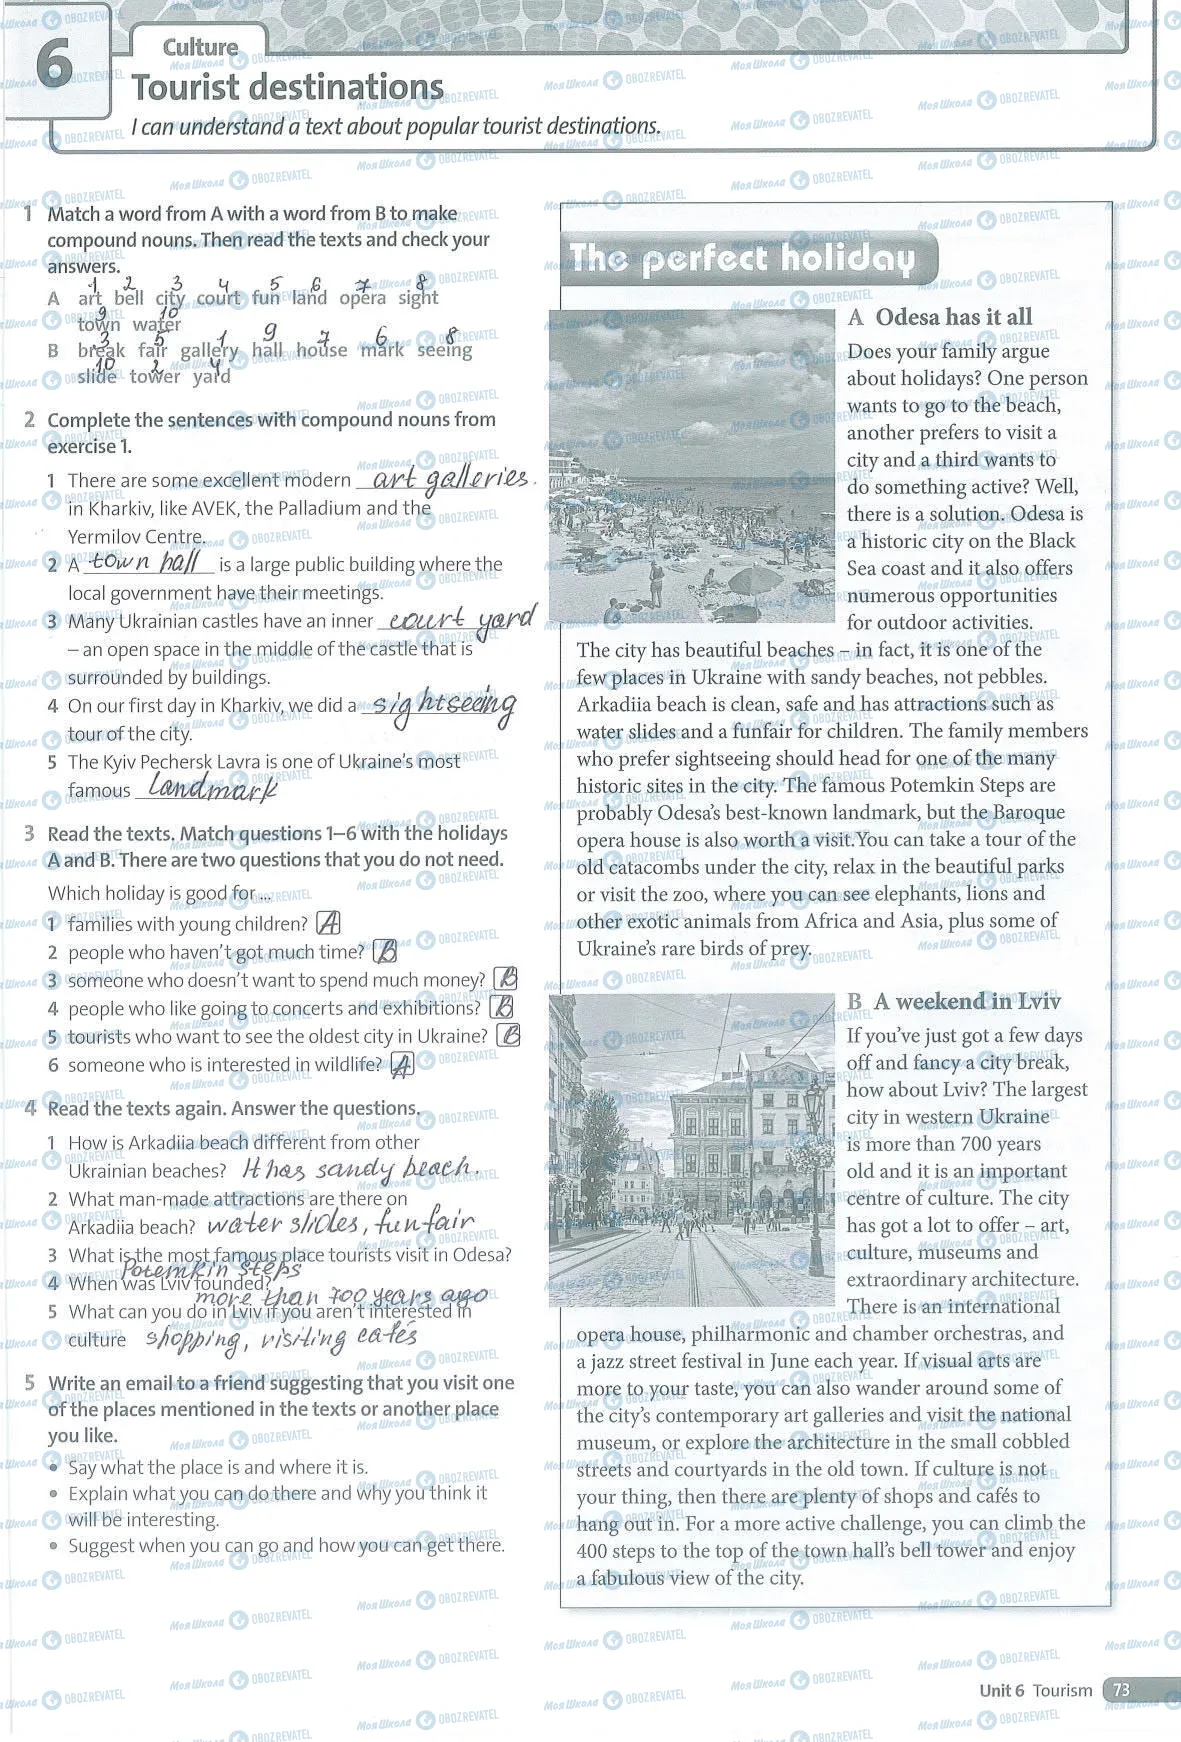 6
Culture
Tourist destinations
I can understand a text about popular tourist destinations.
1 Match a word from A with a word from B to make
compound nouns. Then read the texts and check your
answers.
1 2 3 4 5 6 7 8
A art bell city court fun land opera sight
9 10
town water
3 5 1 9 7 6 8
B break fair gallery hall house mark seeing
10 2 4
slide tower yard
2 Complete the sentences with compound nouns from
exercise 1.
1 There are some excellent modern art galleries.
in Kharkiv, like AVEK, the Palladium and the
Yermilov Centre.
2 A town hall is a large public building where the
local government have their meetings.
3 Many Ukrainian castles have an inner court yard
– an open space in the middle of the castle that is
surrounded by buildings.
4 On our first day in Kharkiv, we did a sightseeing
tour of the city.
5 The Kyiv Pechersk Lavra is one of Ukraine's most
famous landmark
3 Read the texts. Match questions 1–6 with the holidays
A and B. There are two questions that you do not need.
Which holiday is good for ...
1 families with young children? A
2 people who haven't got much time? B
3 someone who doesn't want to spend much money? B
4 people who like going to concerts and exhibitions? B
5 tourists who want to see the oldest city in Ukraine? B
6 someone who is interested in wildlife? A
4 Read the texts again. Answer the questions.
1 How is Arkadiia beach different from other
Ukrainian beaches? It has sandy beach.
2 What man-made attractions are there on
Arkadiia beach? water slides, funfair
3 What is the most famous place tourists visit in Odesa?
Potemkin steps
4 When was Lviv founded?
more than 700 years ago
5 What can you do in Lviv if you aren't interested in
culture shopping, visiting cafés
5 Write an email to a friend suggesting that you visit one
of the places mentioned in the texts or another place
you like.
• Say what the place is and where it is.
• Explain what you can do there and why you think it
will be interesting.
• Suggest when you can go and how you can get there.
The perfect holiday
A Odesa has it all
Does your family argue
about holidays? One person
wants to go to the beach,
another prefers to visit a
city and a third wants to
do something active? Well,
there is a solution. Odesa is
a historic city on the Black
Sea coast and it also offers
numerous opportunities
for outdoor activities.
The city has beautiful beaches – in fact, it is one of the
few places in Ukraine with sandy beaches, not pebbles.
Arkadiia beach is clean, safe and has attractions such as
water slides and a funfair for children. The family members
who prefer sightseeing should head for one of the many
historic sites in the city. The famous Potemkin Steps are
probably Odesa's best-known landmark, but the Baroque
opera house is also worth a visit.You can take a tour of the
old catacombs under the city, relax in the beautiful parks
or visit the zoo, where you can see elephants, lions and
other exotic animals from Africa and Asia, plus some of
Ukraine's rare birds of prey.
B A weekend in Lviv
If you've just got a few days
off and fancy a city break,
how about Lviv? The largest
city in western Ukraine
is more than 700 years
old and it is an important
centre of culture. The city
has got a lot to offer – art,
culture, museums and
extraordinary architecture.
There is an international
opera house, philharmonic and chamber orchestras, and
a jazz street festival in June each year. If visual arts are
more to your taste, you can also wander around some of
the city's contemporary art galleries and visit the national
museum, or explore the architecture in the small cobbled
streets and courtyards in the old town. If culture is not
your thing, then there are plenty of shops and cafés to
hang out in. For a more active challenge, you can climb the
400 steps to the top of the town hall's bell tower and enjoy
a fabulous view of the city.
Unit 6 Tourism 73
Моя Школа OBOZREVATEL